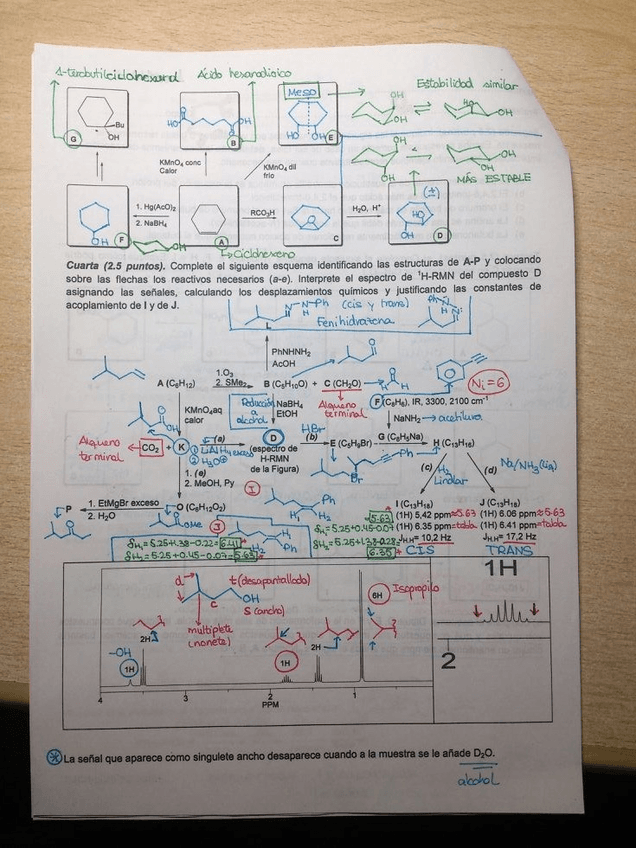 1-terbutilciclohexanol   Ácido hexanodioico
Meso   Estabilidad similar
OH   HO   OH
Bu
OH
G
HO   OH
B
HO   OH
E
KMnO₄ conc
Calor
KMnO₄ dil
frío
OH
OH
OH
OH
MÁS ESTABLE
(±)
1. Hg(AcO)₂
2. NaBH₄
RCO₃H
H₂O, H⁺
OH
F
A
O
C
HO
OH
D
Ciclohexeno
Cuarta (2.5 puntos). Complete el siguiente esquema identificando las estructuras de A-P y colocando
sobre las flechas los reactivos necesarios (a-e). Interprete el espectro de ¹H-RMN del compuesto D
asignando las señales, calculando los desplazamientos químicos y justificando las constantes de
acoplamiento de I y de J.
N-N-Ph
H
(cis y trans)
Fenilhidrazona
L
PhNHNH₂
AcOH
A (C₆H₁₂)
1.O₃
2. SMe₂
B (C₅H₁₀O) + C (CH₂O)
Ni=6
F (C₈H₆), IR, 3300, 2100 cm⁻¹
Alqueno
terminal
KMnO₄aq
calor
Reducción
a
alcohol
NaBH₄
EtOH
HBr
NaNH₂ → acetiluro
Alqueno
terminal
CO₂ + K
(a)
① LiAlH₄ exceso
② H₃O⁺
D
(espectro de
H-RMN
de la Figura)
(b)
E (C₅H₉Br)
G (C₈H₅Na)
H (C₁₃H₁₆)
Br
Ph
(c)
H₂
Lindlar
(d)
Na/NH₃(líq)
1. (e)
2. MeOH, Py
P
1. EtMgBr exceso
2. H₂O
O (C₆H₁₂O₂)
OMe
I
J
I (C₁₃H₁₈)
(1H) 5,42 ppm ≈5.63
(1H) 6.35 ppm
J_H,H= 10,2 Hz
CIS
J (C₁₃H₁₈)
(1H) 6.06 ppm ≈5.63
(1H) 6.41 ppm
J_H,H= 17,2 Hz
TRANS
δH₁=5.25+1.38-0.22=6.41
δH₂=5.25+0.45-0.07=5.63
δH₁=5.25+0.45-0.07
5.63
δH₂=5.25+1.38-0.28=
6.35
d
t (desapantallado)
OH
c
S (ancho)
multiplete
(nonete)
6H
Isopropilo
-OH
1H
2H
1H
2H
4   3   2   1
PPM
1H
2
La señal que aparece como singulete ancho desaparece cuando a la muestra se le añade D₂O.
alcohol